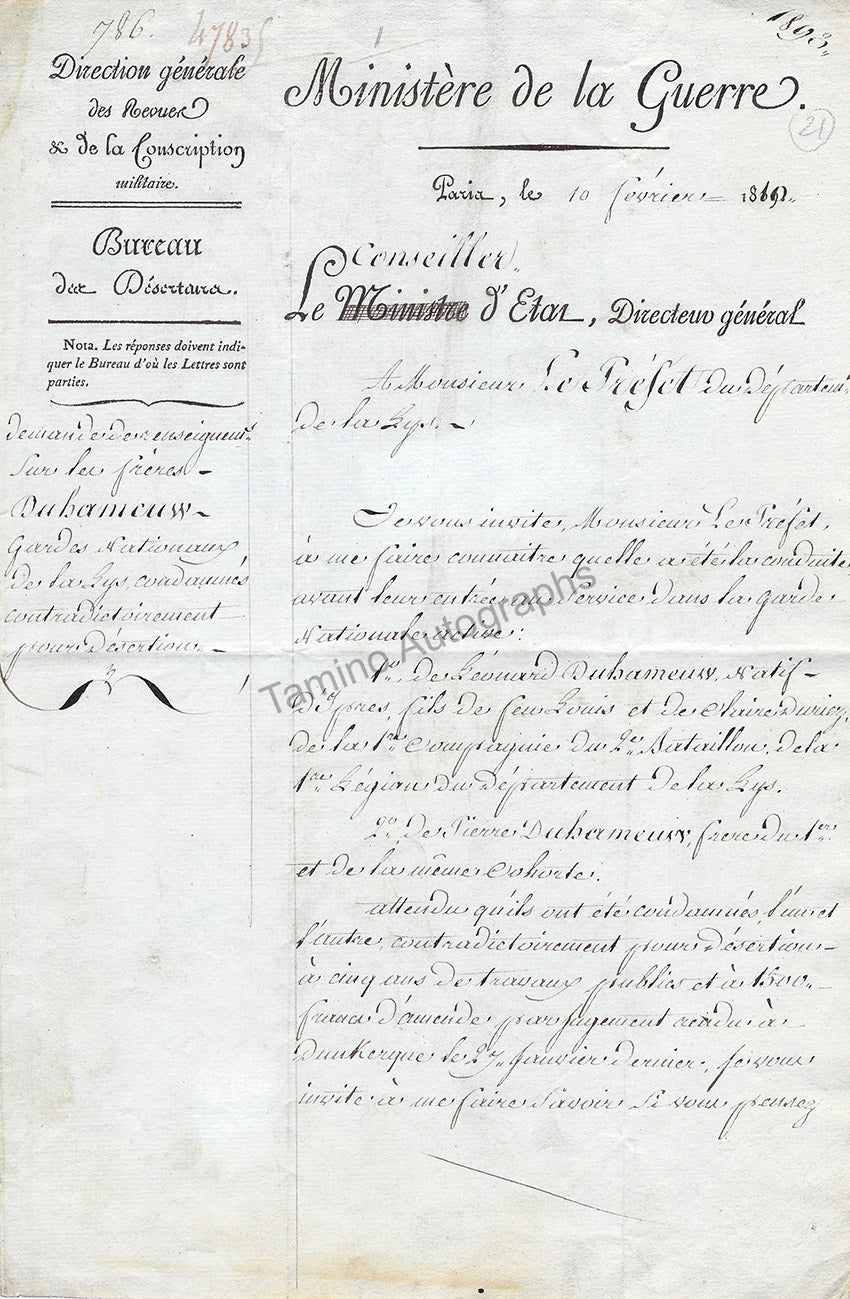 786.
47835
1
1893.
21
Direction générale
des Revues
& de la Conscription
militaire.
Bureau
des Déserteurs.
Nota. Les réponses doivent indi-
quer le Bureau d'où les Lettres sont
parties.
demande de renseignem.ts
Sur les frères
Duhameuw
Gardes Nationaux
de la Lys, condamnés
contradictoirement
pour désertion.
Ministère de la Guerre.
Paris, le 10 février
Conseiller
Le Ministre d'Etat, Directeur général
A Monsieur Le Préfet du départem.t
de la Lys.
Je vous invite, Monsieur Le Préfet,
à me faire connaitre quelle a été la conduite,
avant leur entrée au Service dans la Garde
Nationale active:
1.o de Léonard Duhameuw, Natif
d'Ypres, fils de feu Louis et de Claire
de la 1.re Compagnie du 2.e Bataillon, de la
1.re Légion du département de la Lys.
2.o de Pierre Duhameuw, frere du 1.er
et de la même Cohorte.
attendu qu'ils ont été condamnés, l'un et
l'autre, contradictoirement pour désertion
à cinq ans de travaux publics et à 1500.
francs d'amende par jugement rendu à
Dunkerque le 27 Janvier dernier, je vous
invite à me faire Savoir Si vous pensez
Tamino Autographs